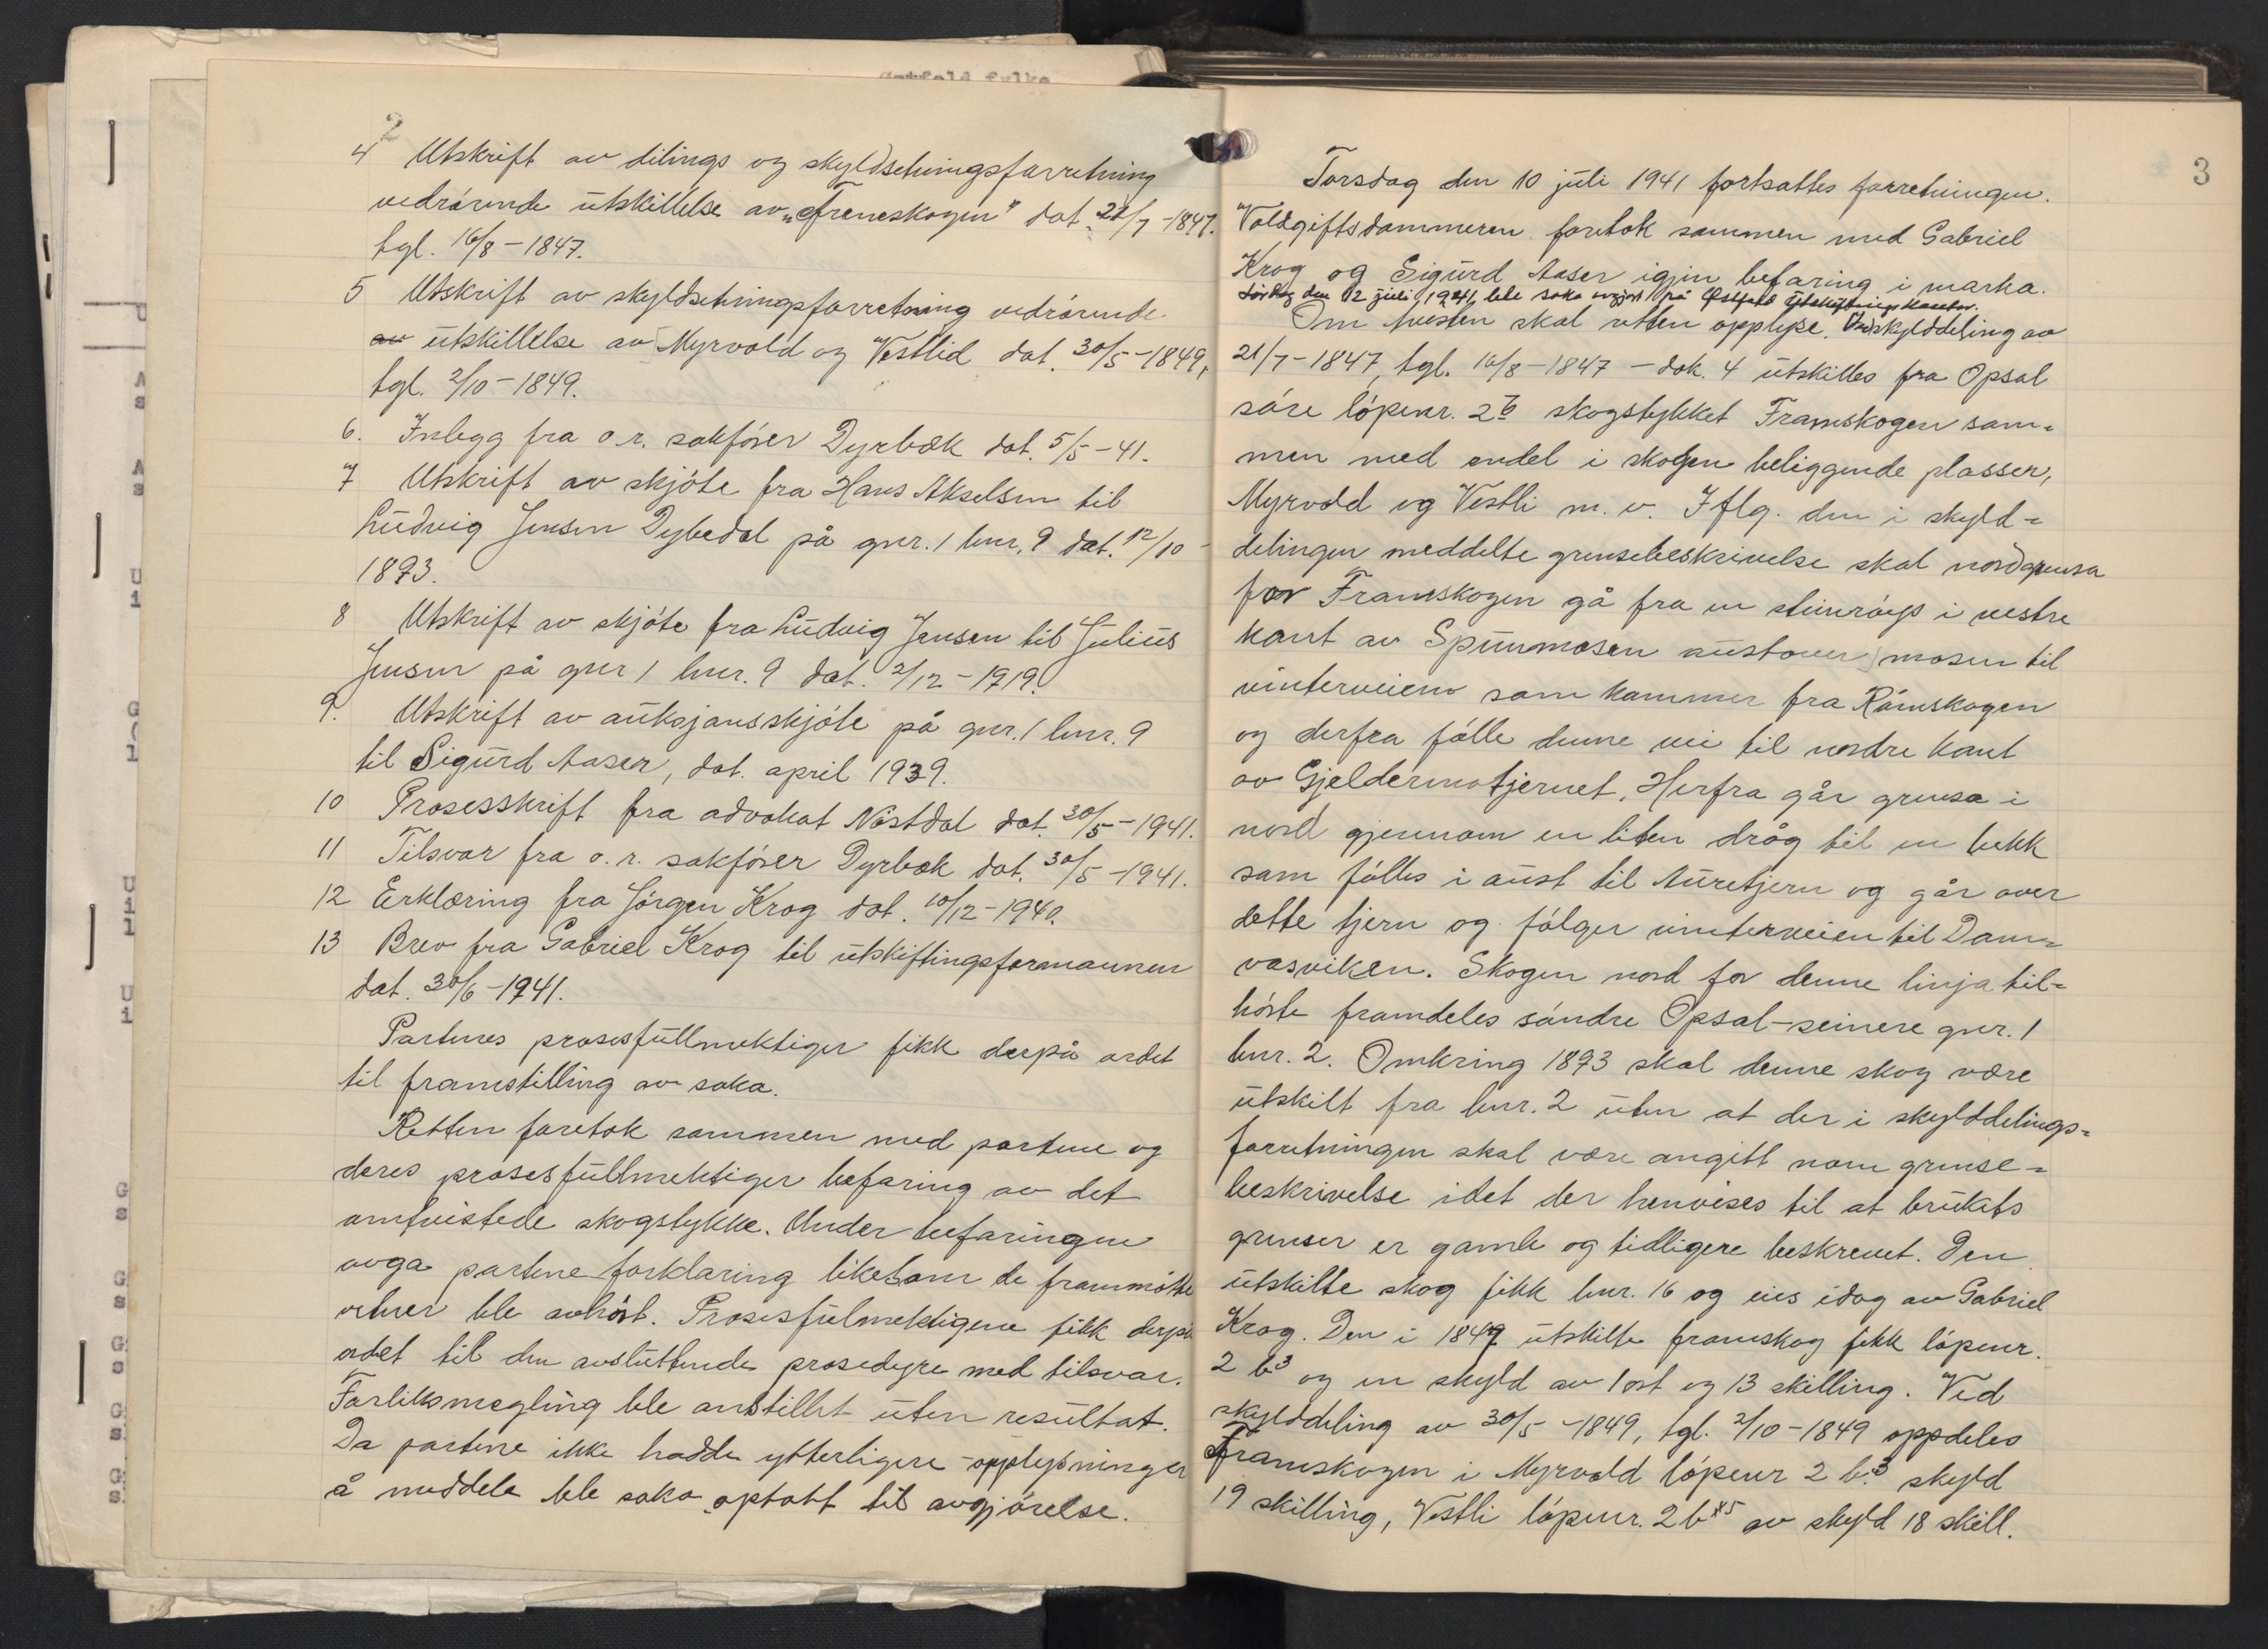 Østfold fylke
2
4 Utskrift av delings og skyldsetningsforretning
vedrørende utskillelse av „Freneskogen" dat. 21/7-1847.
tgl. 16/8-1847.
5 Utskrift av skyldsetningsforretning vedrørende
av utskillelse av Myrvold og Vestlid dat. 30/5-1849,
tgl. 2/10-1849.
6. Innlegg fra o.r. sakfører Dyrbæk dat. 5/5-41.
7 Utskrift av skjøte fra Hans Akselsen til
Ludvig Jensen Dybedal på gnr. 1 bnr. 9 dat. 12/10-
1893.
8 Utskrift av skjøte fra Ludvig Jensen til Julius
Jensen på gnr 1 bnr. 9 dat. 2/12-1919.
9. Utskrift av auksjonsskjøte på gnr. 1 bnr. 9
til Sigurd Aaser, dat. april 1939.
10 Prosesskrift fra advokat Nåstdal dat. 30/5-1941.
11 Tilsvar fra o.r. sakfører Dyrbæk dat. 30/5-1941.
12 Erklæring fra Jørgen Krog dat. 10/12-1940.
13 Brev fra Gabriel Krog til utskiftingsformannen
dat. 30/6-1941.
Partenes prosesfullmektiger fikk derpå ordet
til framstilling av saka.
Retten foretok sammen med partene og
deres prosesfullmektiger befaring av det
omtvistede skogstykke. Under befaringen
avga partene forklaring likesom de frammøtte
vitner ble avhørt. Prosesfulmektigene fikk derpå
ordet til den avsluttende prosedyre med tilsvar.
Forliksmegling ble anstillet uten resultat.
Da partene ikke hadde ytterligere opplysninger
å meddele ble saka optatt til avgjørelse.
3
Torsdag den 10 juli 1941 fortsattes forretningen.
Voldgiftsdommeren foretok sammen med Gabriel
Krog og Sigurd Aaser igjen befaring i marka.
Lørdag den 12 juli 1941 ble saka avgjort på Østfold Utskiftningskontor.
Om tvisten skal retten opplyse. Ved skylddeling av
21/7-1847, tgl. 16/8-1847 - dok. 4 utskilles fra Opsal
søre løpenr. 2b skogstykket Framskogen sam=
men med endel i skogen beliggende plasser,
Myrvold og Vestli m.v. Iflg. den i skyld=
delingen meddelte grensebeskrivelse skal nordgrensa
for Framskogen gå fra en steinrøys i vestre
kant av Spunmosen austover mosen til
vinterveien som kommer fra Rømskogen
og derfra følle denne vei til nordre kant
av Gjeldermotjernet. Herfra går grensa i
nord gjennom en liten dråg til en bekk
som følles i aust til Auretjern og går over
dette tjern og følger vinterveien til Dam=
vasviken. Skogen nord for denne linja til=
hørte framdeles søndre Opsal-seinere gnr. 1
bnr. 2. Omkring 1893 skal denne skog være
utskilt fra bnr. 2 uten at der i skylddelings=
forretningen skal være angitt noen grense=
beskrivelse idet der henvises til at brukets
grenser er gamle og tidligere beskrevet. Den
utskilte skog fikk bnr. 16 og eies idag av Gabriel
Krog. Den i 1847 utskilte framskog fikk løpenr.
2 b3 og en skyld av 1 ort og 13 skilling. Ved
skylddeling av 30/5-1849, tgl. 2/10-1849 oppdeles
Framskogen i Myrvold løpenr 2 b.3 skyld
19 skilling, Vestli løpenr. 2 b x5 av skyld 18 skill.